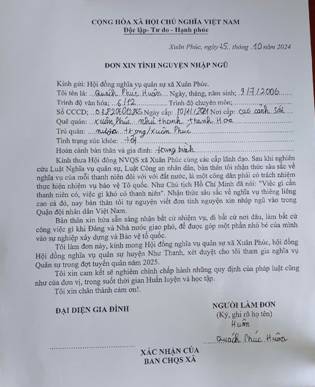 CỘNG HÒA XÃ HỘI CHỦ NGHĨA VIỆT NAM
Độc lập- Tự do - Hạnh phúc
Xuân Phúc, ngày 15 tháng 10 năm 2024
ĐƠN XIN TÌNH NGUYỆN NHẬP NGŨ
Kính gửi: Hội đồng nghĩa vụ quân sự xã Xuân Phúc.
Tôi tên là: Quách Phúc Huân Ngày, tháng, năm sinh: 9/7/2006
Trình độ văn hóa: 6/12 Trình độ chuyên môn:
Số CCCD: Ngày cấp: Nơi cấp: cục cảnh sát
Quê quán: Xuân Phúc Như Thanh Thanh Hóa
Trú quán: /Xuân Phúc
Tình trạng sức khỏe: tốt
Hoàn cảnh bản thân và gia đình: trung bình
Kính thưa Hội đồng NVQS xã Xuân Phúc cùng các cấp lãnh đạo. Sau khi nghiên
cứu Luật Nghĩa vụ quân sự, Luật Công an nhân dân, bản thân tôi nhận thức sâu sắc về
nghĩa vụ của mỗi thanh niên đối với với đất nước, là một công dân phải có trách nhiệm
thực hiện nhiệm vụ bảo vệ Tổ quốc. Như Chủ tịch Hồ Chí Minh đã nói: "Việc gì cần
thanh niên có, việc gì khó có thanh niên". Nhận thức sâu sắc về nghĩa vụ thiêng liêng
cao cả đó, nay bản thân tôi tự nguyện viết đơn tình nguyện xin nhập ngũ vào trong
Quân đội nhân dân Việt Nam.
Bản thân xin hứa sẵn sàng nhận bất cứ nhiệm vụ, đi bất cứ nơi đâu, làm bất cứ
công việc gì khi Đảng và Nhà nước giao phó, để được góp một phần nhỏ bé của mình
vào sự nghiệp xây dựng và Bảo vệ tổ quốc.
Tôi làm đơn này, kính mong Hội đồng nghĩa vụ quân sự xã Xuân Phúc, hội đồng
Nghĩa vụ quân sự huyện Như Thanh, xét duyệt cho tôi tham gia nghĩa vụ
Quân sự trong đợt tuyển quân năm 2025.
Tôi xin cam kết sẽ nghiêm chỉnh chấp hành những quy định của pháp luật cũng
như của đơn vị, trong suốt thời gian Huấn luyện và học tập.
Tôi xin chân thành cảm ơn!.
ĐẠI DIỆN GIA ĐÌNH
NGƯỜI LÀM ĐƠN
(Ký, ghi rõ họ tên)
Huân
Quách Phúc Huân
XÁC NHẬN CỦA
BAN CHQS XÃ